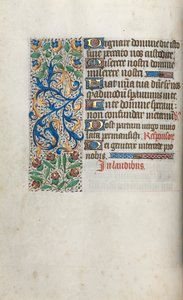 Dignare domine die isto
sine peccato nos custodire.
miserere nostri domine
miserere nostri.
Fiat mīa tua dūe sr̄ nos
q̄admodū sperauimus in te.
In te domine speraui:
non confundar in eternū.
Post partum virgo inuio
lata permansisti. Respons̄.
Dei genitrix intercede pro
nobis.
In laudibus.